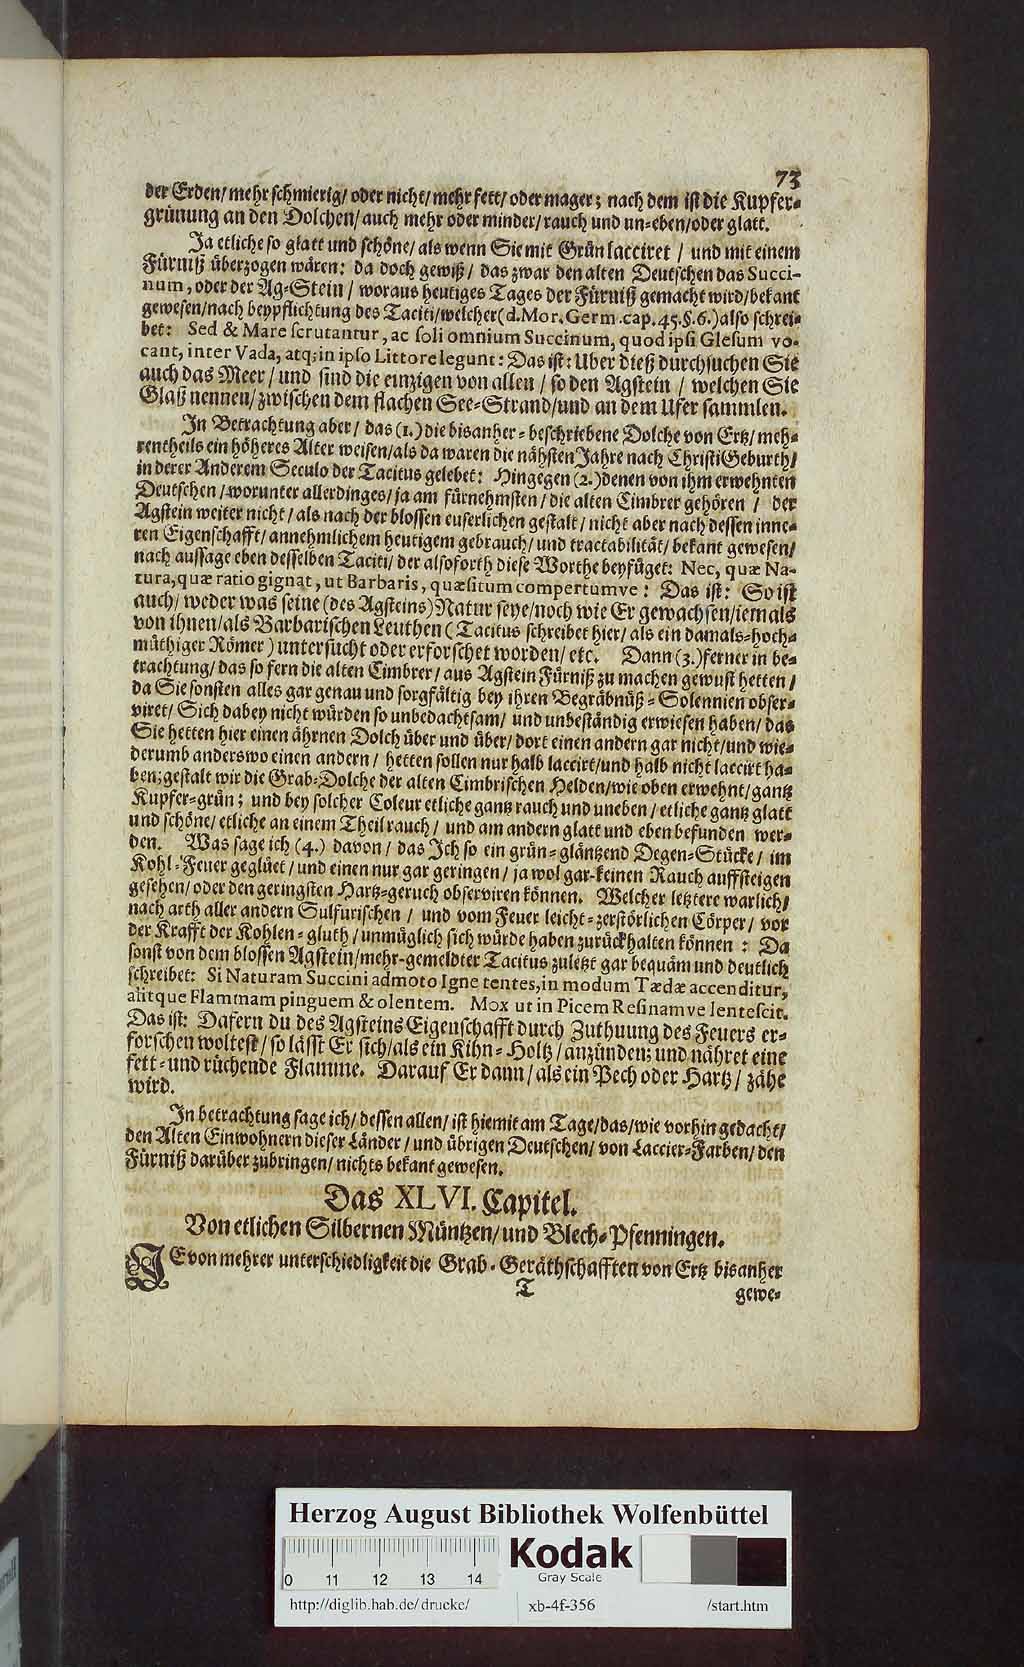 73
der Erden/ mehr schmierig/ oder nicht/ mehr fett/ oder mager; nach dem ist die Kupfer-
grünung an den Dolchen/ auch mehr oder minder/ rauch und un-eben/ oder glatt.
Ja etliche so glatt und schöne/ als wenn Sie mit Grün lacciret / und mit einem
Fürniß überzogen wären: da doch gewiß/ das zwar den alten Deutschen das Succi-
num, oder der Ag-Stein/ woraus heutiges Tages der Fürniß gemacht wird/ bekant
gewesen/ nach beypflichtung des Taciti/ welcher (d. Mor. Germ. cap. 45. §. 6.) also schrei-
bet: Sed & Mare scrutantur, ac soli omnium Succinum, quod ipsi Glesum vo-
cant, inter Vada, atq; in ipso Littore legunt: Das ist: Uber dieß durchsuchen Sie
auch das Meer/ und sind die einzigen von allen / so den Agstein / welchen Sie
Glaß nennen/ zwischen dem flachen See-Strand/ und an dem Ufer sammlen.
In Betrachtung aber/ das (1.) die bisanher-beschriebene Dolche von Ertz/ meh-
rentheils ein höheres Alter weisen/ als da waren die nähsten Jahre nach Christi Geburth/
in derer Anderem Seculo der Tacitus gelebet: Hingegen (2.) denen von ihm erwehnten
Deutschen/ worunter allerdinges/ ja am fürnehmsten/ die alten Cimbrer gehören / der
Agstein weiter nicht/ als nach der blossen euserlichen gestalt/ nicht aber nach dessen inne-
ren Eigenschafft/ annehmlichem heutigem gebrauch/ und tractabilität/ bekant gewesen/
nach aussage eben desselben Taciti/ der alsoforth diese Worthe beyfüget: Nec, quæ Na-
tura, quæ ratio gignat, ut Barbaris, quæsitum compertumve: Das ist: So ist
auch/ weder was seine (des Agsteins) Natur seye/ noch wie Er gewachsen/ iemals
von ihnen/ als Barbarischen Leuthen (Tacitus schreibet hier/ als ein damals-hoch-
müthiger Römer) untersucht oder erforschet worden/ etc. Dann (3.) ferner in be-
trachtung/ das so fern die alten Cimbrer/ aus Agstein Fürniß zu machen gewust hetten/
da Sie sonsten alles gar genau und sorgfältig bey ihren Begräbnüß-Solennien obser-
viret/ Sich dabey nicht würden so unbedachtsam/ und unbeständig erwiesen haben/ das
Sie hetten hier einen ährnen Dolch über und über/ dort einen andern gar nicht/ und wie-
derumb anderswo einen andern/ hetten sollen nur halb laccirt/ und halb nicht laccirt ha-
ben; gestalt wir die Grab-Dolche der alten Cimbrischen Helden/ wie oben erwehnt/ gantz
Kupfer-grün; und bey solcher Coleur etliche gantz rauch und uneben/ etliche gantz glatt
und schöne/ etliche an einem Theil rauch/ und am andern glatt und eben befunden wer-
den. Was sage ich (4.) davon/ das Ich so ein grün-gläntzend Degen-Stücke/ im
Kohl-Feuer geglüet/ und einen nur gar geringen/ ja wol gar-keinen Rauch auffsteigen
gesehen/ oder den geringsten Hartz-geruch observiren können. Welcher letztere warlich/
nach arth aller andern Sulfurischen / und vom Feuer leicht-zerstörlichen Cörper/ vor
der Krafft der Kohlen-gluth/ unmüglich sich würde haben zurückhalten können: Da
sonst von dem blossen Agstein/ mehr-gemeldter Tacitus zuletzt gar bequäm und deutlich
schreibet: Si Naturam Succini admoto Igne tentes, in modum Tædæ accenditur,
alitque Flammam pinguem & olentem. Mox ut in Picem Resinamve lentescit.
Das ist: Dafern du des Agsteins Eigenschafft durch Zuthuung des Feuers er-
forschen woltest/ so lässt Er sich/ als ein Kihn-Holtz/ anzünden; und nähret eine
fett-und rüchende Flamme. Darauf Er dann/ als ein Pech oder Hartz/ zähe
wird.
In betrachtung sage ich/ dessen allen/ ist hiemit am Tage/ das/ wie vorhin gedacht/
den Alten Einwohnern dieser Länder/ und übrigen Deutschen/ von Laccier-Farben/ den
Fürniß darüber zubringen/ nichts bekant gewesen.
Das XLVI. Capitel.
Von etlichen Silbernen Müntzen/ und Blech-Pfenningen.
JE von mehrer unterschiedligkeit die Grab-Geräthschafften von Ertz bisanher
T
gewe-
Herzog August Bibliothek Wolfenbüttel
0 11 12 13 14
Kodak
Gray Scale
http://diglib.hab.de/drucke/ xb-4f-356 /start.htm